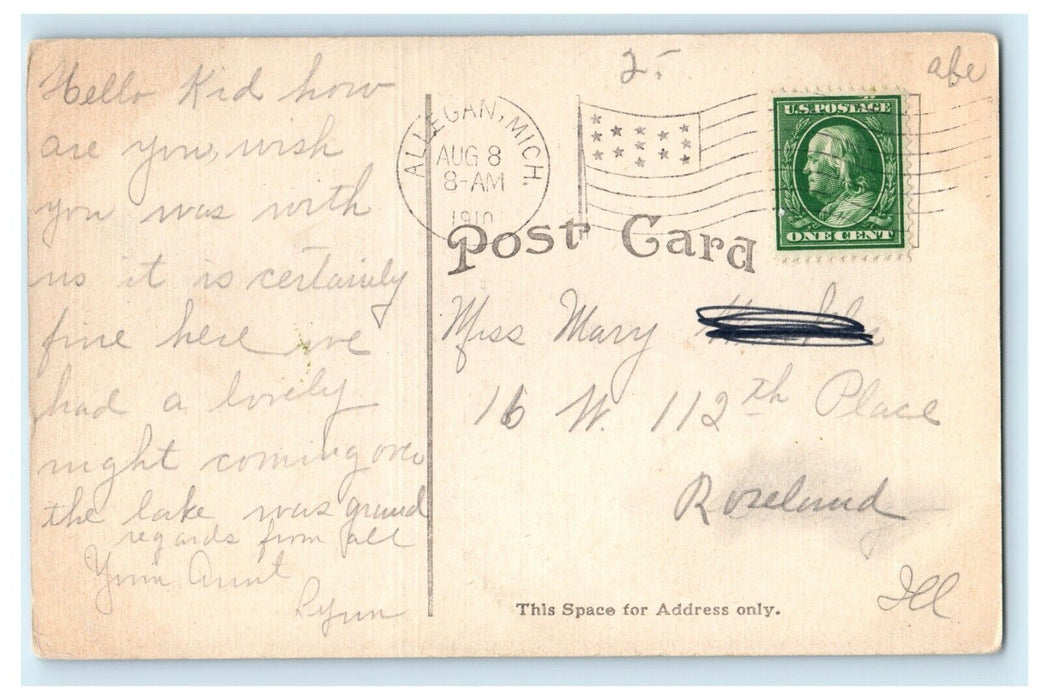 Hello Kid how
are you, wish
you was with
us it is certainly
fine here we
had a lovely
night coming over
the lake was grand
regards from all
Your Aunt
Lynn
2-
abe
ALLEGAN, MICH.
AUG 8
8-AM
1910
U.S. POSTAGE
ONE CENT
Post Card
Miss Mary
16 W. 112th Place
Roseland
Ill
This Space for Address only.